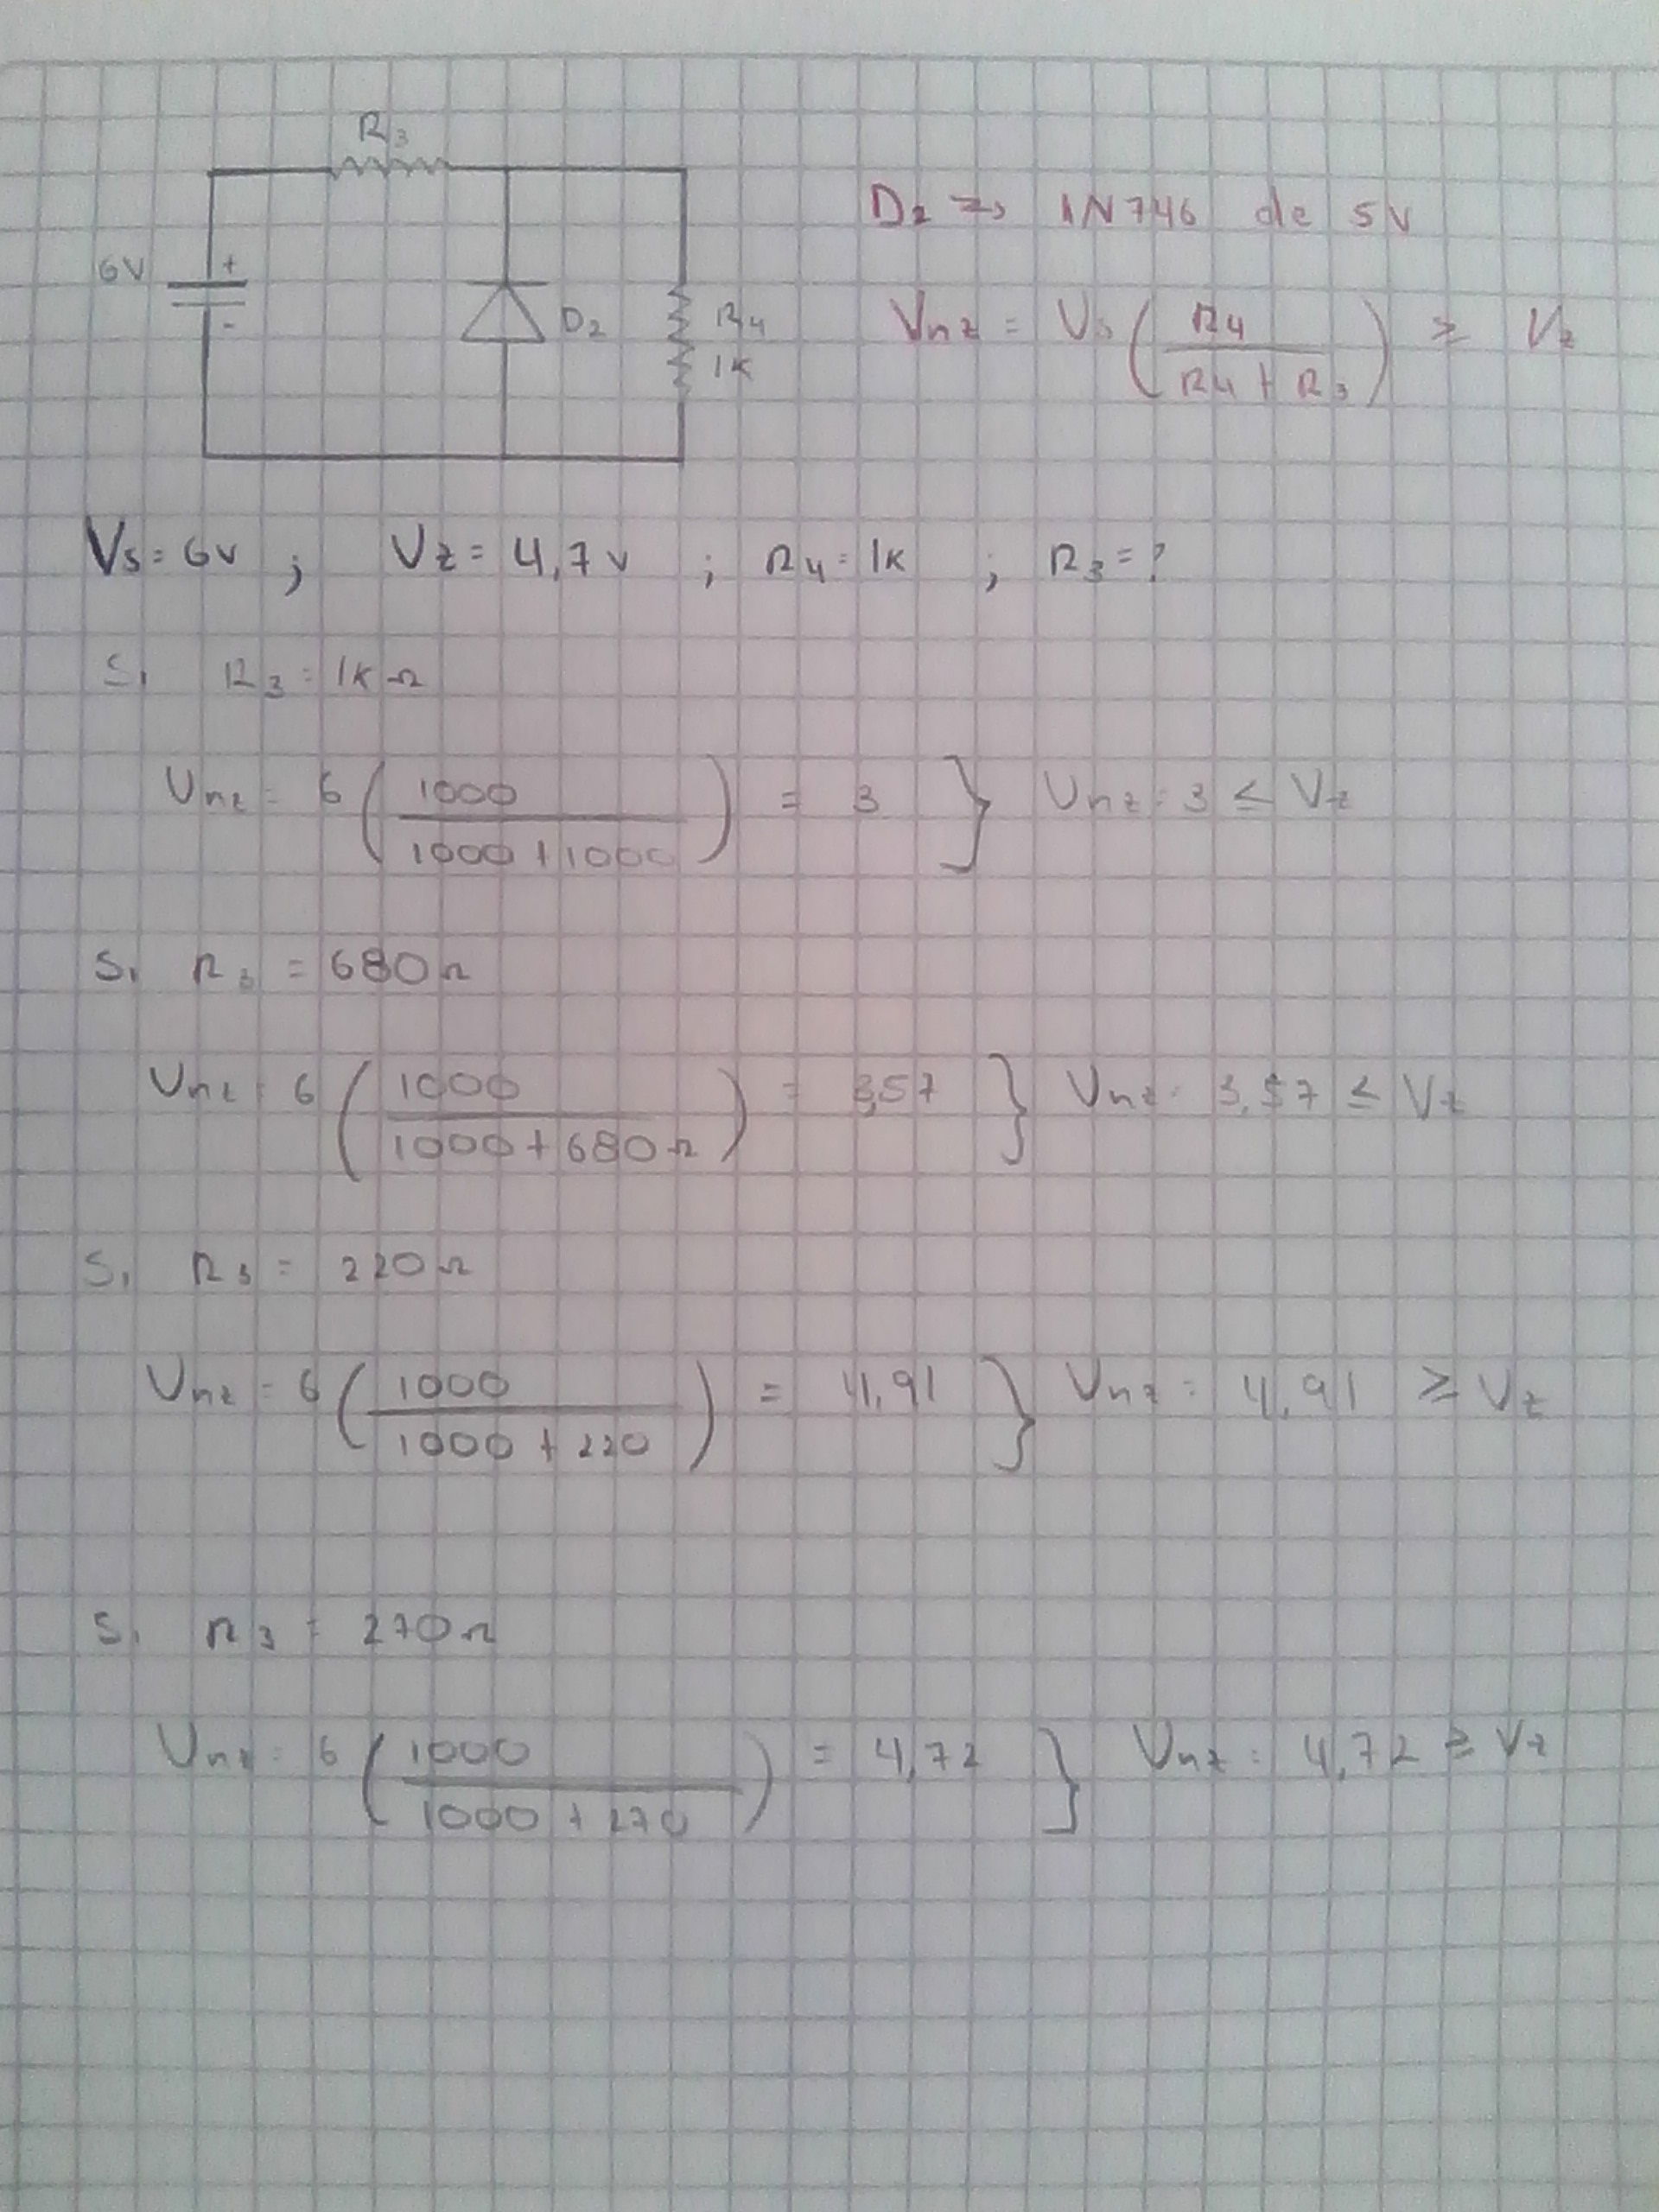 R3
6V
+
-
D2
R4
1K
D2 => 1N746 de 5V
Vnz = Vs ( R4 / R4 + R3 ) ≥ Vz
Vs = 6v ; Vz = 4,7v ; R4 = 1K ; R3 = ?
Si R3 = 1KΩ
Vnz = 6 ( 1000 / 1000 + 1000 ) = 3 } Vnz = 3 ≤ Vz
Si R3 = 680Ω
Vnz = 6 ( 1000 / 1000 + 680Ω ) = 3,57 } Vnz = 3,57 ≤ Vz
Si R3 = 220Ω
Vnz = 6 ( 1000 / 1000 + 220 ) = 4,91 } Vnz = 4,91 ≥ Vz
Si R3 = 270Ω
Vnz = 6 ( 1000 / 1000 + 270 ) = 4,72 } Vnz = 4,72 ≥ Vz